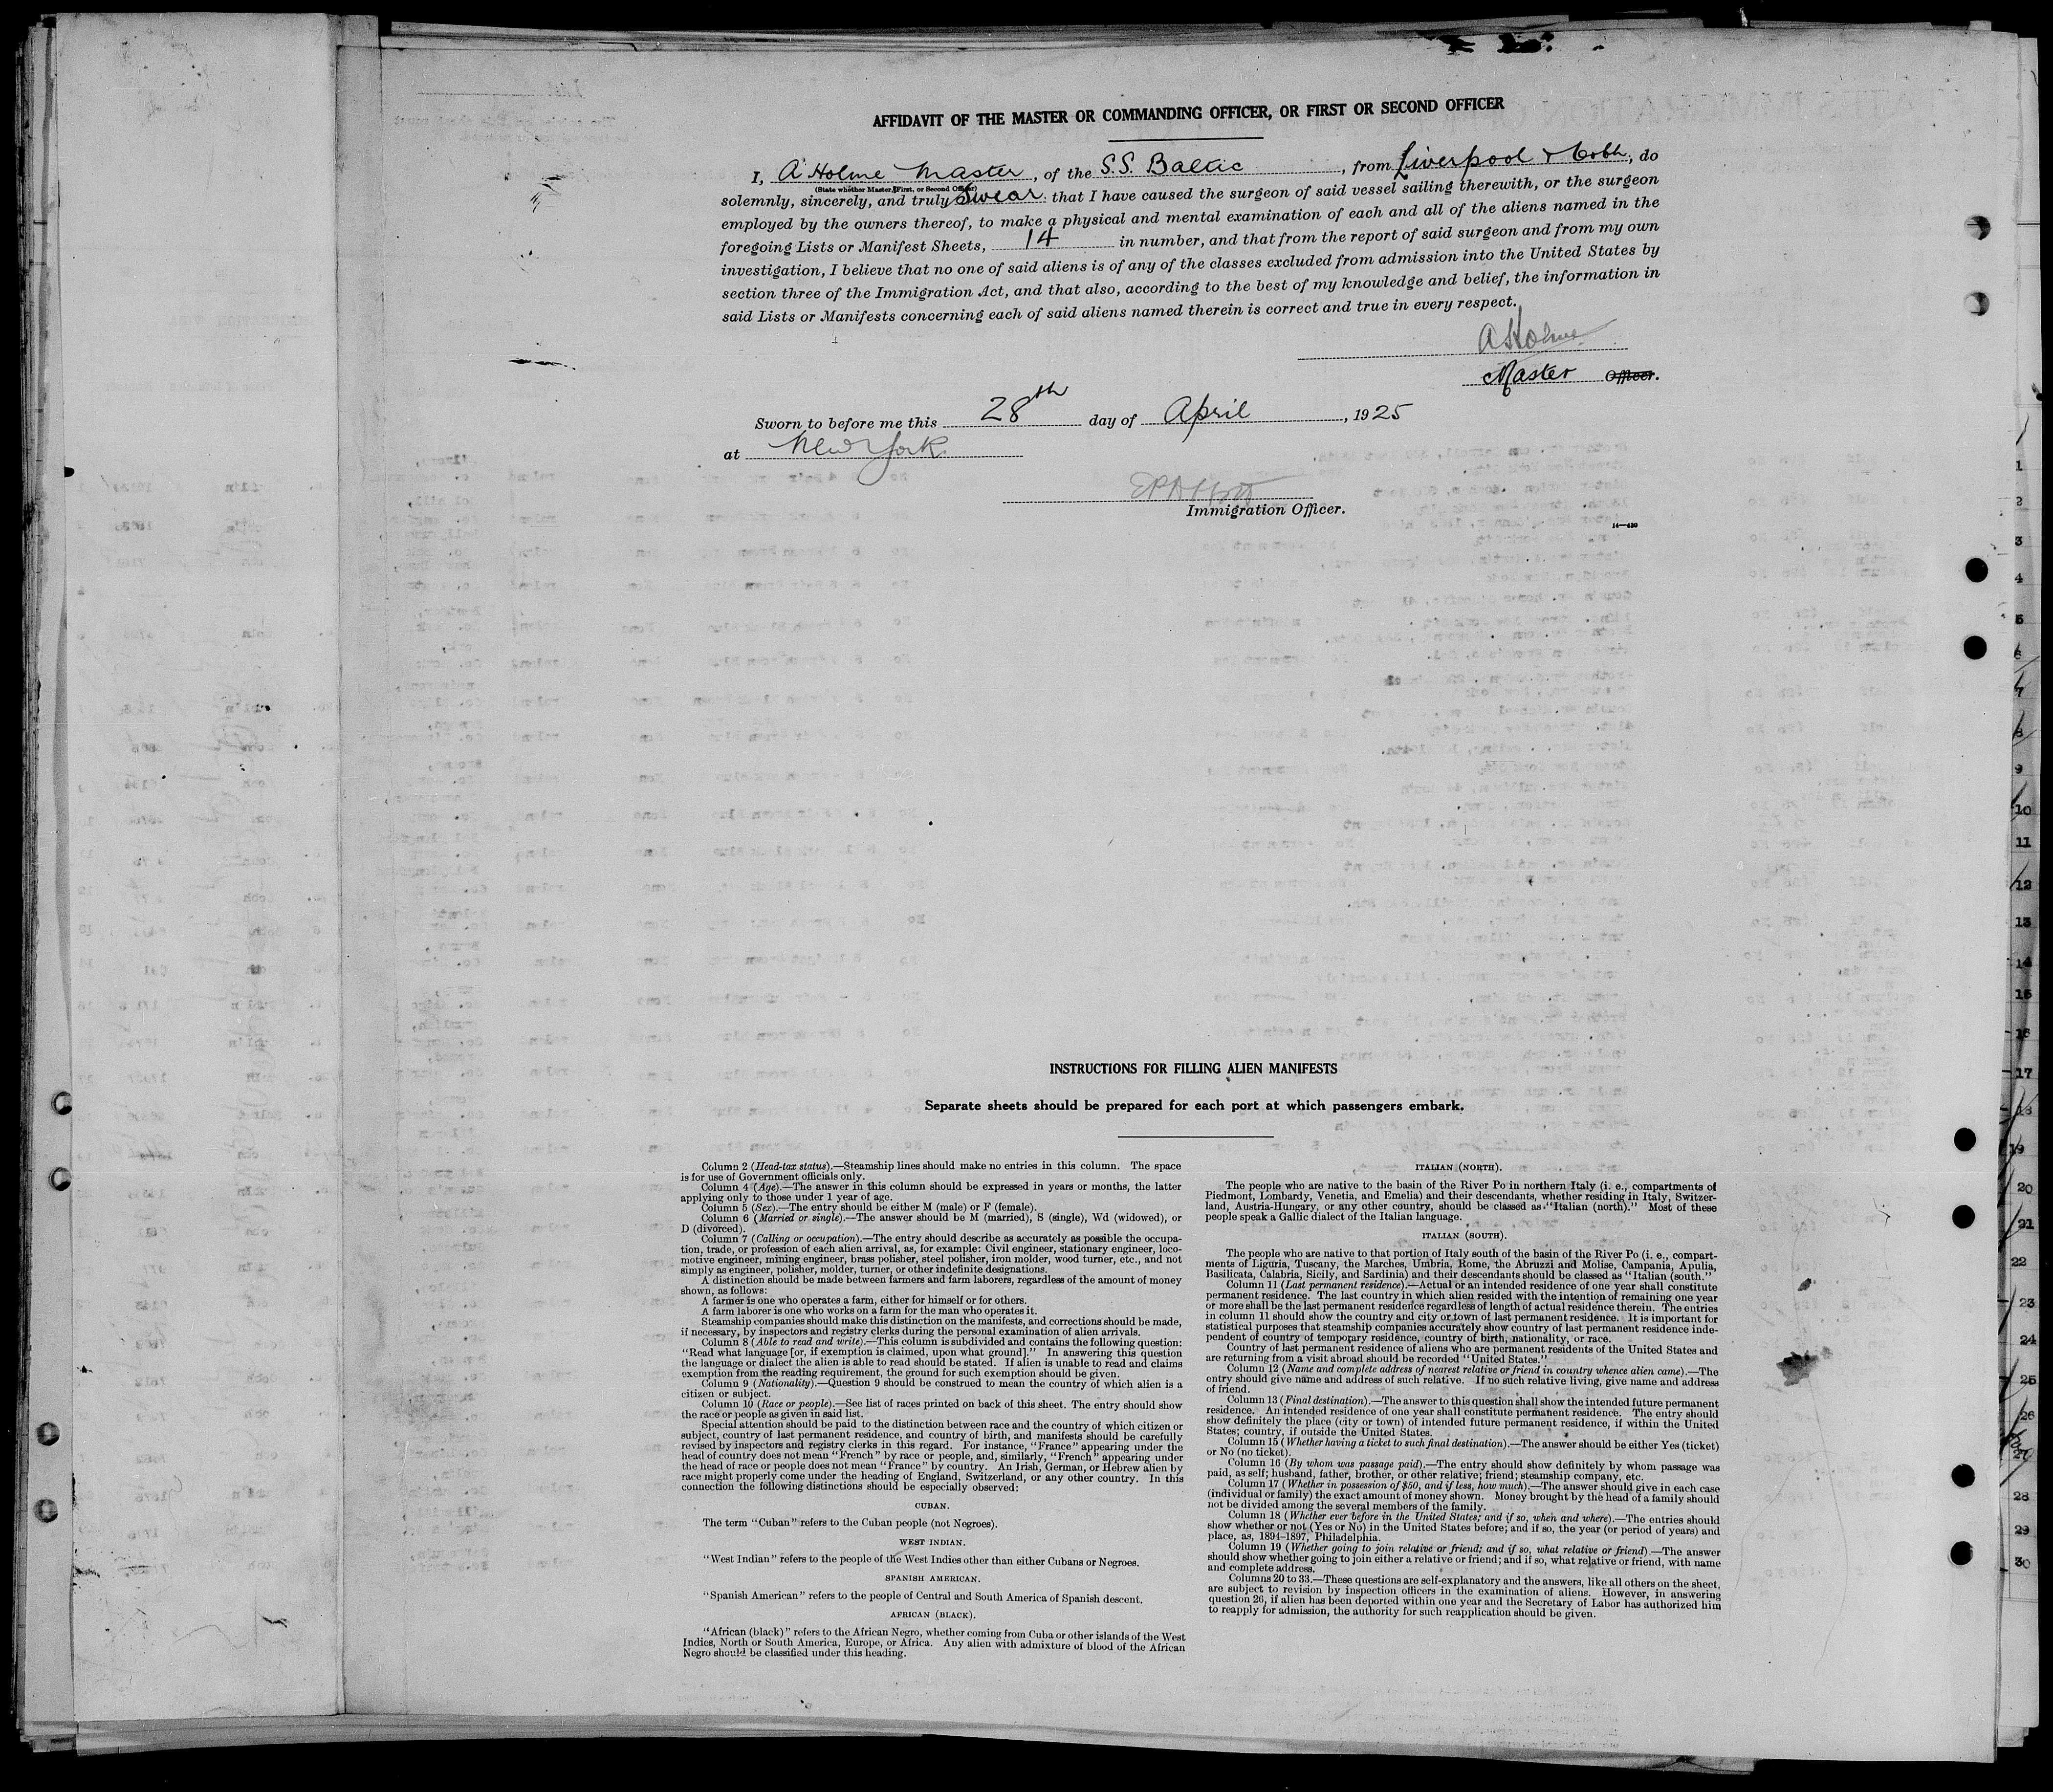 AFFIDAVIT OF THE MASTER OR COMMANDING OFFICER, OR FIRST OR SECOND OFFICER
I, A Holme Master, of the S.S. Baltic, from Liverpool & Cobh, do
(State whether Master, First, or Second Officer)
solemnly, sincerely, and truly Swear that I have caused the surgeon of said vessel sailing therewith, or the surgeon
employed by the owners thereof, to make a physical and mental examination of each and all of the aliens named in the
foregoing Lists or Manifest Sheets, 14 in number, and that from the report of said surgeon and from my own
investigation, I believe that no one of said aliens is of any of the classes excluded from admission into the United States by
section three of the Immigration Act, and that also, according to the best of my knowledge and belief, the information in
said Lists or Manifests concerning each of said aliens named therein is correct and true in every respect.
A Holme
Master Officer.
Sworn to before me this 28th day of April, 1925
at New York
Immigration Officer.
14—430
1
2
3
4
5
6
7
8
9
10
11
12
13
14
15
16
17
18
19
20
21
22
23
24
25
26
27
28
29
30
INSTRUCTIONS FOR FILLING ALIEN MANIFESTS
Separate sheets should be prepared for each port at which passengers embark.
Column 2 (Head-tax status).—Steamship lines should make no entries in this column. The space
is for use of Government officials only.
Column 4 (Age).—The answer in this column should be expressed in years or months, the latter
applying only to those under 1 year of age.
Column 5 (Sex).—The entry should be either M (male) or F (female).
Column 6 (Married or single).—The answer should be M (married), S (single), Wd (widowed), or
D (divorced).
Column 7 (Calling or occupation).—The entry should describe as accurately as possible the occupa-
tion, trade, or profession of each alien arrival, as, for example: Civil engineer, stationary engineer, loco-
motive engineer, mining engineer, brass polisher, steel polisher, iron molder, wood turner, etc., and not
simply as engineer, polisher, molder, turner, or other indefinite designations.
A distinction should be made between farmers and farm laborers, regardless of the amount of money
shown, as follows:
A farmer is one who operates a farm, either for himself or for others.
A farm laborer is one who works on a farm for the man who operates it.
Steamship companies should make this distinction on the manifests, and corrections should be made,
if necessary, by inspectors and registry clerks during the personal examination of alien arrivals.
Column 8 (Able to read and write).—This column is subdivided and contains the following question:
"Read what language [or, if exemption is claimed, upon what ground]." In answering this question
the language or dialect the alien is able to read should be stated. If alien is unable to read and claims
exemption from the reading requirement, the ground for such exemption should be given.
Column 9 (Nationality).—Question 9 should be construed to mean the country of which alien is a
citizen or subject.
Column 10 (Race or people).—See list of races printed on back of this sheet. The entry should show
the race or people as given in said list.
Special attention should be paid to the distinction between race and the country of which citizen or
subject, country of last permanent residence, and country of birth, and manifests should be carefully
revised by inspectors and registry clerks in this regard. For instance, "France" appearing under the
head of country does not mean "French" by race or people, and, similarly, "French" appearing under
the head of race or people does not mean "France" by country. An Irish, German, or Hebrew alien by
race might properly come under the heading of England, Switzerland, or any other country. In this
connection the following distinctions should be especially observed:
CUBAN.
The term "Cuban" refers to the Cuban people (not Negroes).
WEST INDIAN.
"West Indian" refers to the people of the West Indies other than either Cubans or Negroes.
SPANISH AMERICAN.
"Spanish American" refers to the people of Central and South America of Spanish descent.
AFRICAN (BLACK).
"African (black)" refers to the African Negro, whether coming from Cuba or other islands of the West
Indies, North or South America, Europe, or Africa. Any alien with admixture of blood of the African
Negro should be classified under this heading.
ITALIAN (NORTH).
The people who are native to the basin of the River Po in northern Italy (i. e., compartments of
Piedmont, Lombardy, Venetia, and Emelia) and their descendants, whether residing in Italy, Switzer-
land, Austria-Hungary, or any other country, should be classed as "Italian (north)." Most of these
people speak a Gallic dialect of the Italian language.
ITALIAN (SOUTH).
The people who are native to that portion of Italy south of the basin of the River Po (i. e., compart-
ments of Liguria, Tuscany, the Marches, Umbria, Rome, the Abruzzi and Molise, Campania, Apulia,
Basilicata, Calabria, Sicily, and Sardinia) and their descendants should be classed as "Italian (south."
Column 11 (Last permanent residence).—Actual or an intended residence of one year shall constitute
permanent residence. The last country in which alien resided with the intention of remaining one year
or more shall be the last permanent residence regardless of length of actual residence therein. The entries
in column 11 should show the country and city or town of last permanent residence. It is important for
statistical purposes that steamship companies accurately show country of last permanent residence inde-
pendent of country of temporary residence, country of birth, nationality, or race.
Country of last permanent residence of aliens who are permanent residents of the United States and
are returning from a visit abroad should be recorded "United States."
Column 12 (Name and complete address of nearest relative or friend in country whence alien came).—The
entry should give name and address of such relative. If no such relative living, give name and address
of friend.
Column 13 (Final destination).—The answer to this question shall show the intended future permanent
residence. An intended residence of one year shall constitute permanent residence. The entry should
show definitely the place (city or town) of intended future permanent residence, if within the United
States; country, if outside the United States.
Column 15 (Whether having a ticket to such final destination).—The answer should be either Yes (ticket)
or No (no ticket).
Column 16 (By whom was passage paid).—The entry should show definitely by whom passage was
paid, as self; husband, father, brother, or other relative; friend; steamship company, etc.
Column 17 (Whether in possession of $50, and if less, how much).—The answer should give in each case
(individual or family) the exact amount of money shown. Money brought by the head of a family should
not be divided among the several members of the family.
Column 18 (Whether ever before in the United States; and if so, when and where).—The entries should
show whether or not (Yes or No) in the United States before; and if so, the year (or period of years) and
place, as, 1894-1897, Philadelphia.
Column 19 (Whether going to join relative or friend; and if so, what relative or friend).—The answer
should show whether going to join either a relative or friend; and if so, what relative or friend, with name
and complete address.
Columns 20 to 33.—These questions are self-explanatory and the answers, like all others on the sheet,
are subject to revision by inspection officers in the examination of aliens. However, in answering
question 26, if alien has been deported within one year and the Secretary of Labor has authorized him
to reapply for admission, the authority for such reapplication should be given.